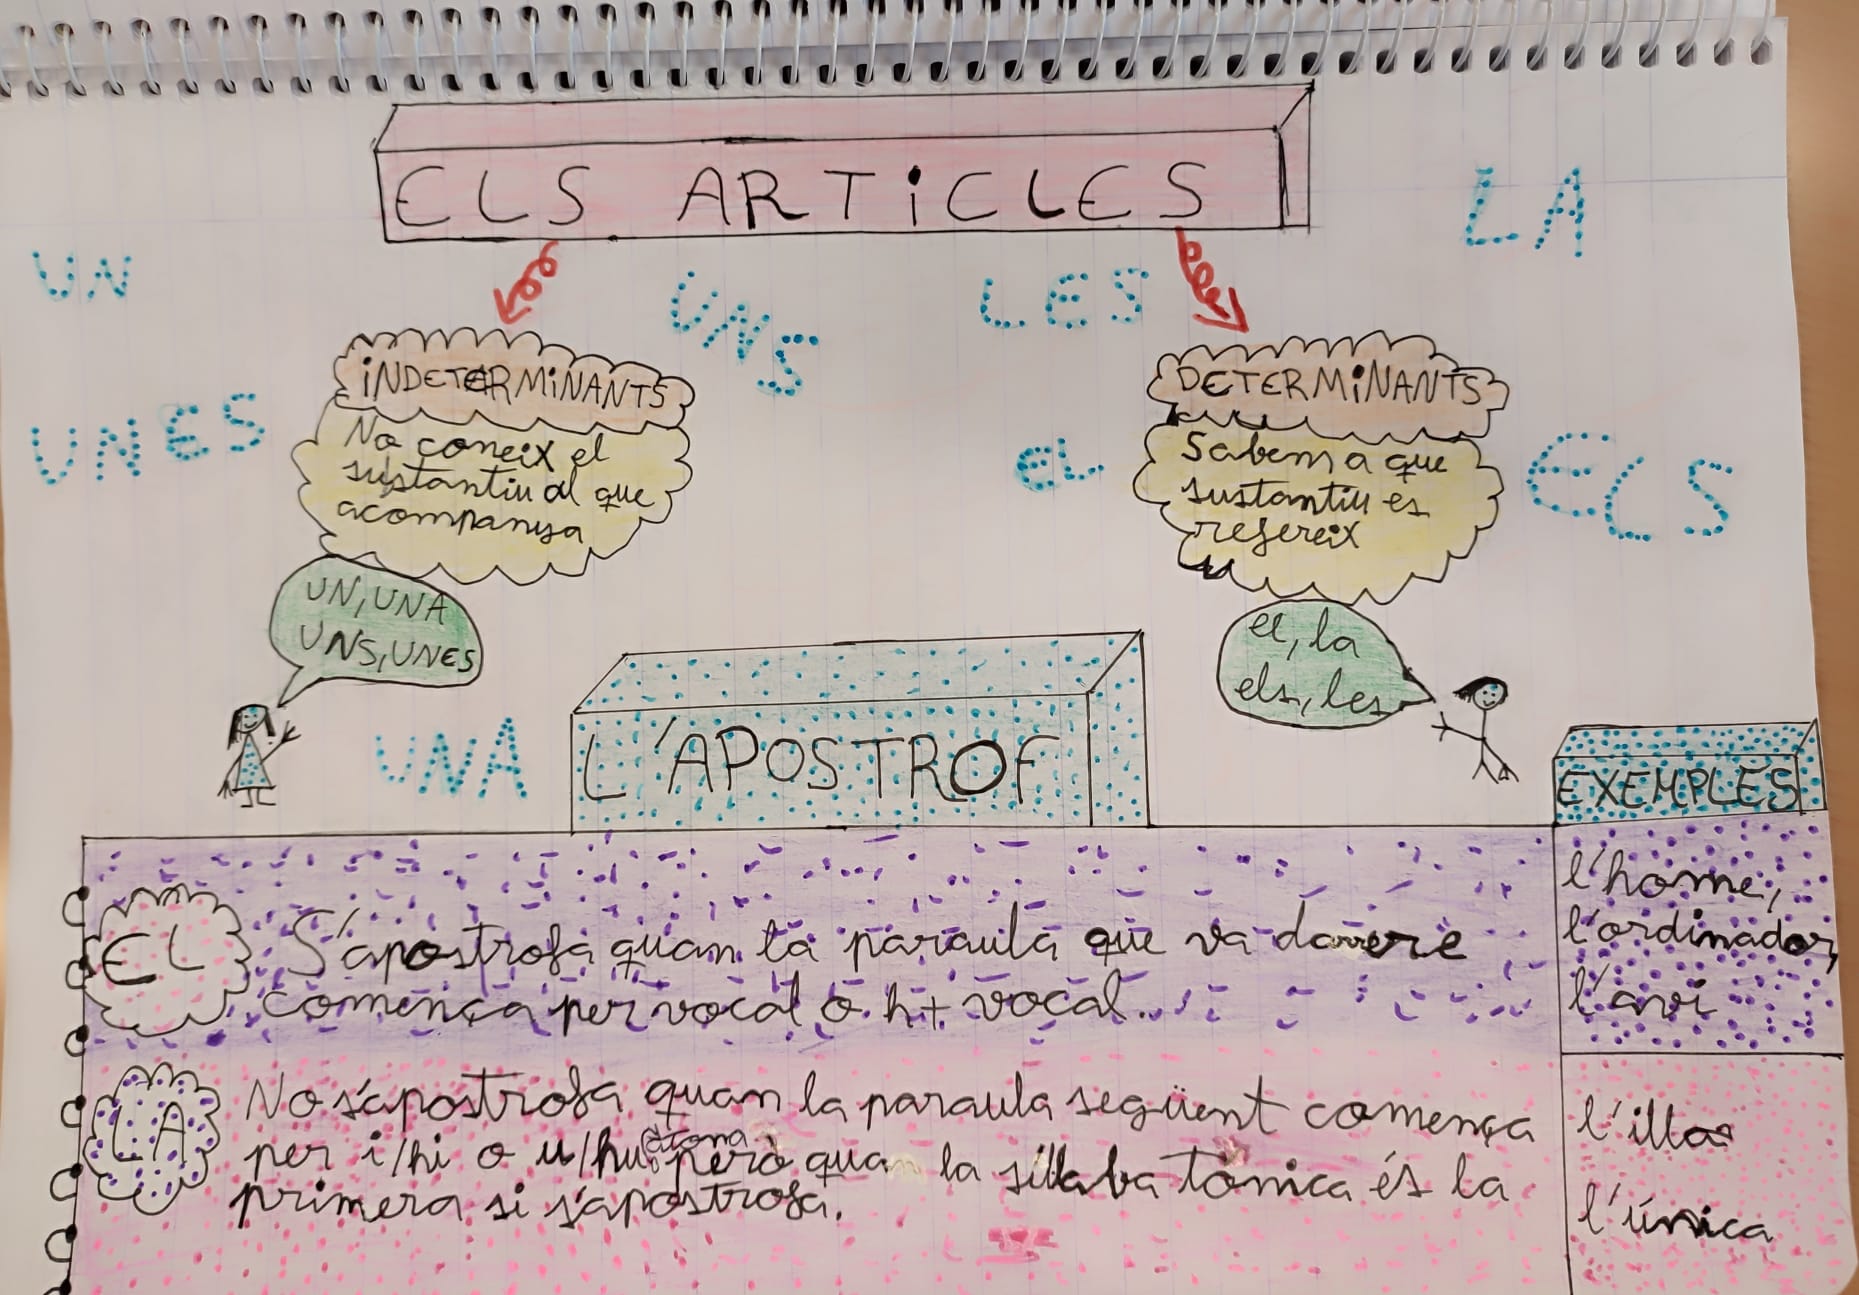 ELS ARTiCLES
LA
UN
UNS
LES
iNDETERMiNANTS
DETERMiNANTS
UNES
No coneix el
sustantiu al que
acompanya
EL
Sabem a que
sustantiu es
refereix
ELS
UN, UNA
UNS, UNES
el, la
els, les
UNA
L'APOSTROF
EXEMPLES
EL
S'apostrofa quan la paraula que va darrere
comença per vocal o h+ vocal.
l'home,
l'ordinador,
l'avi
LA
No s'apostrofa quan la paraula següent comença
per i/hi o u/hu àtona però quan la síl·laba tònica és la
primera si s'apostrofa.
l'illa
l'única